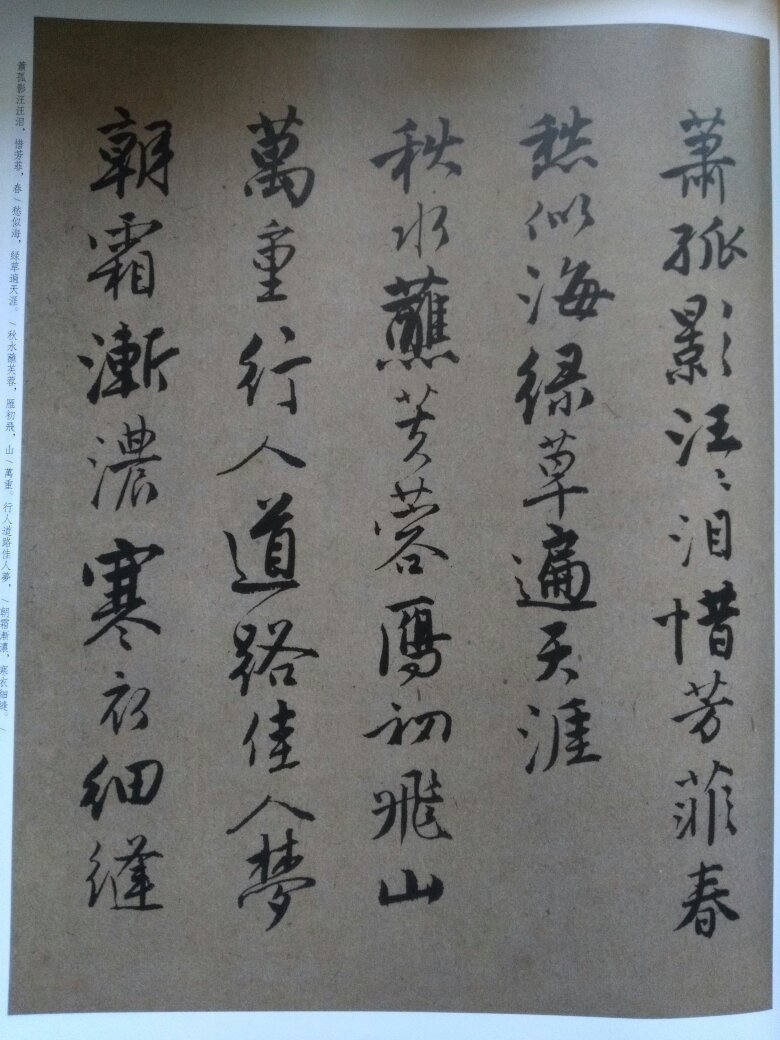 蕭孤影汪〻泪惜芳菲春
愁似海緑草遍天涯
秋水蘸芙蓉鴈初飛山
萬重行人道路佳人夢
朝霜漸濃寒衣細縫
蕭孤影汪汪泪，惜芳菲，春\愁似海，緑草遍天涯。\秋水蘸芙蓉，雁初飛，山\萬重。行人道路佳人夢，\朝霜漸濃，寒衣細縫。\